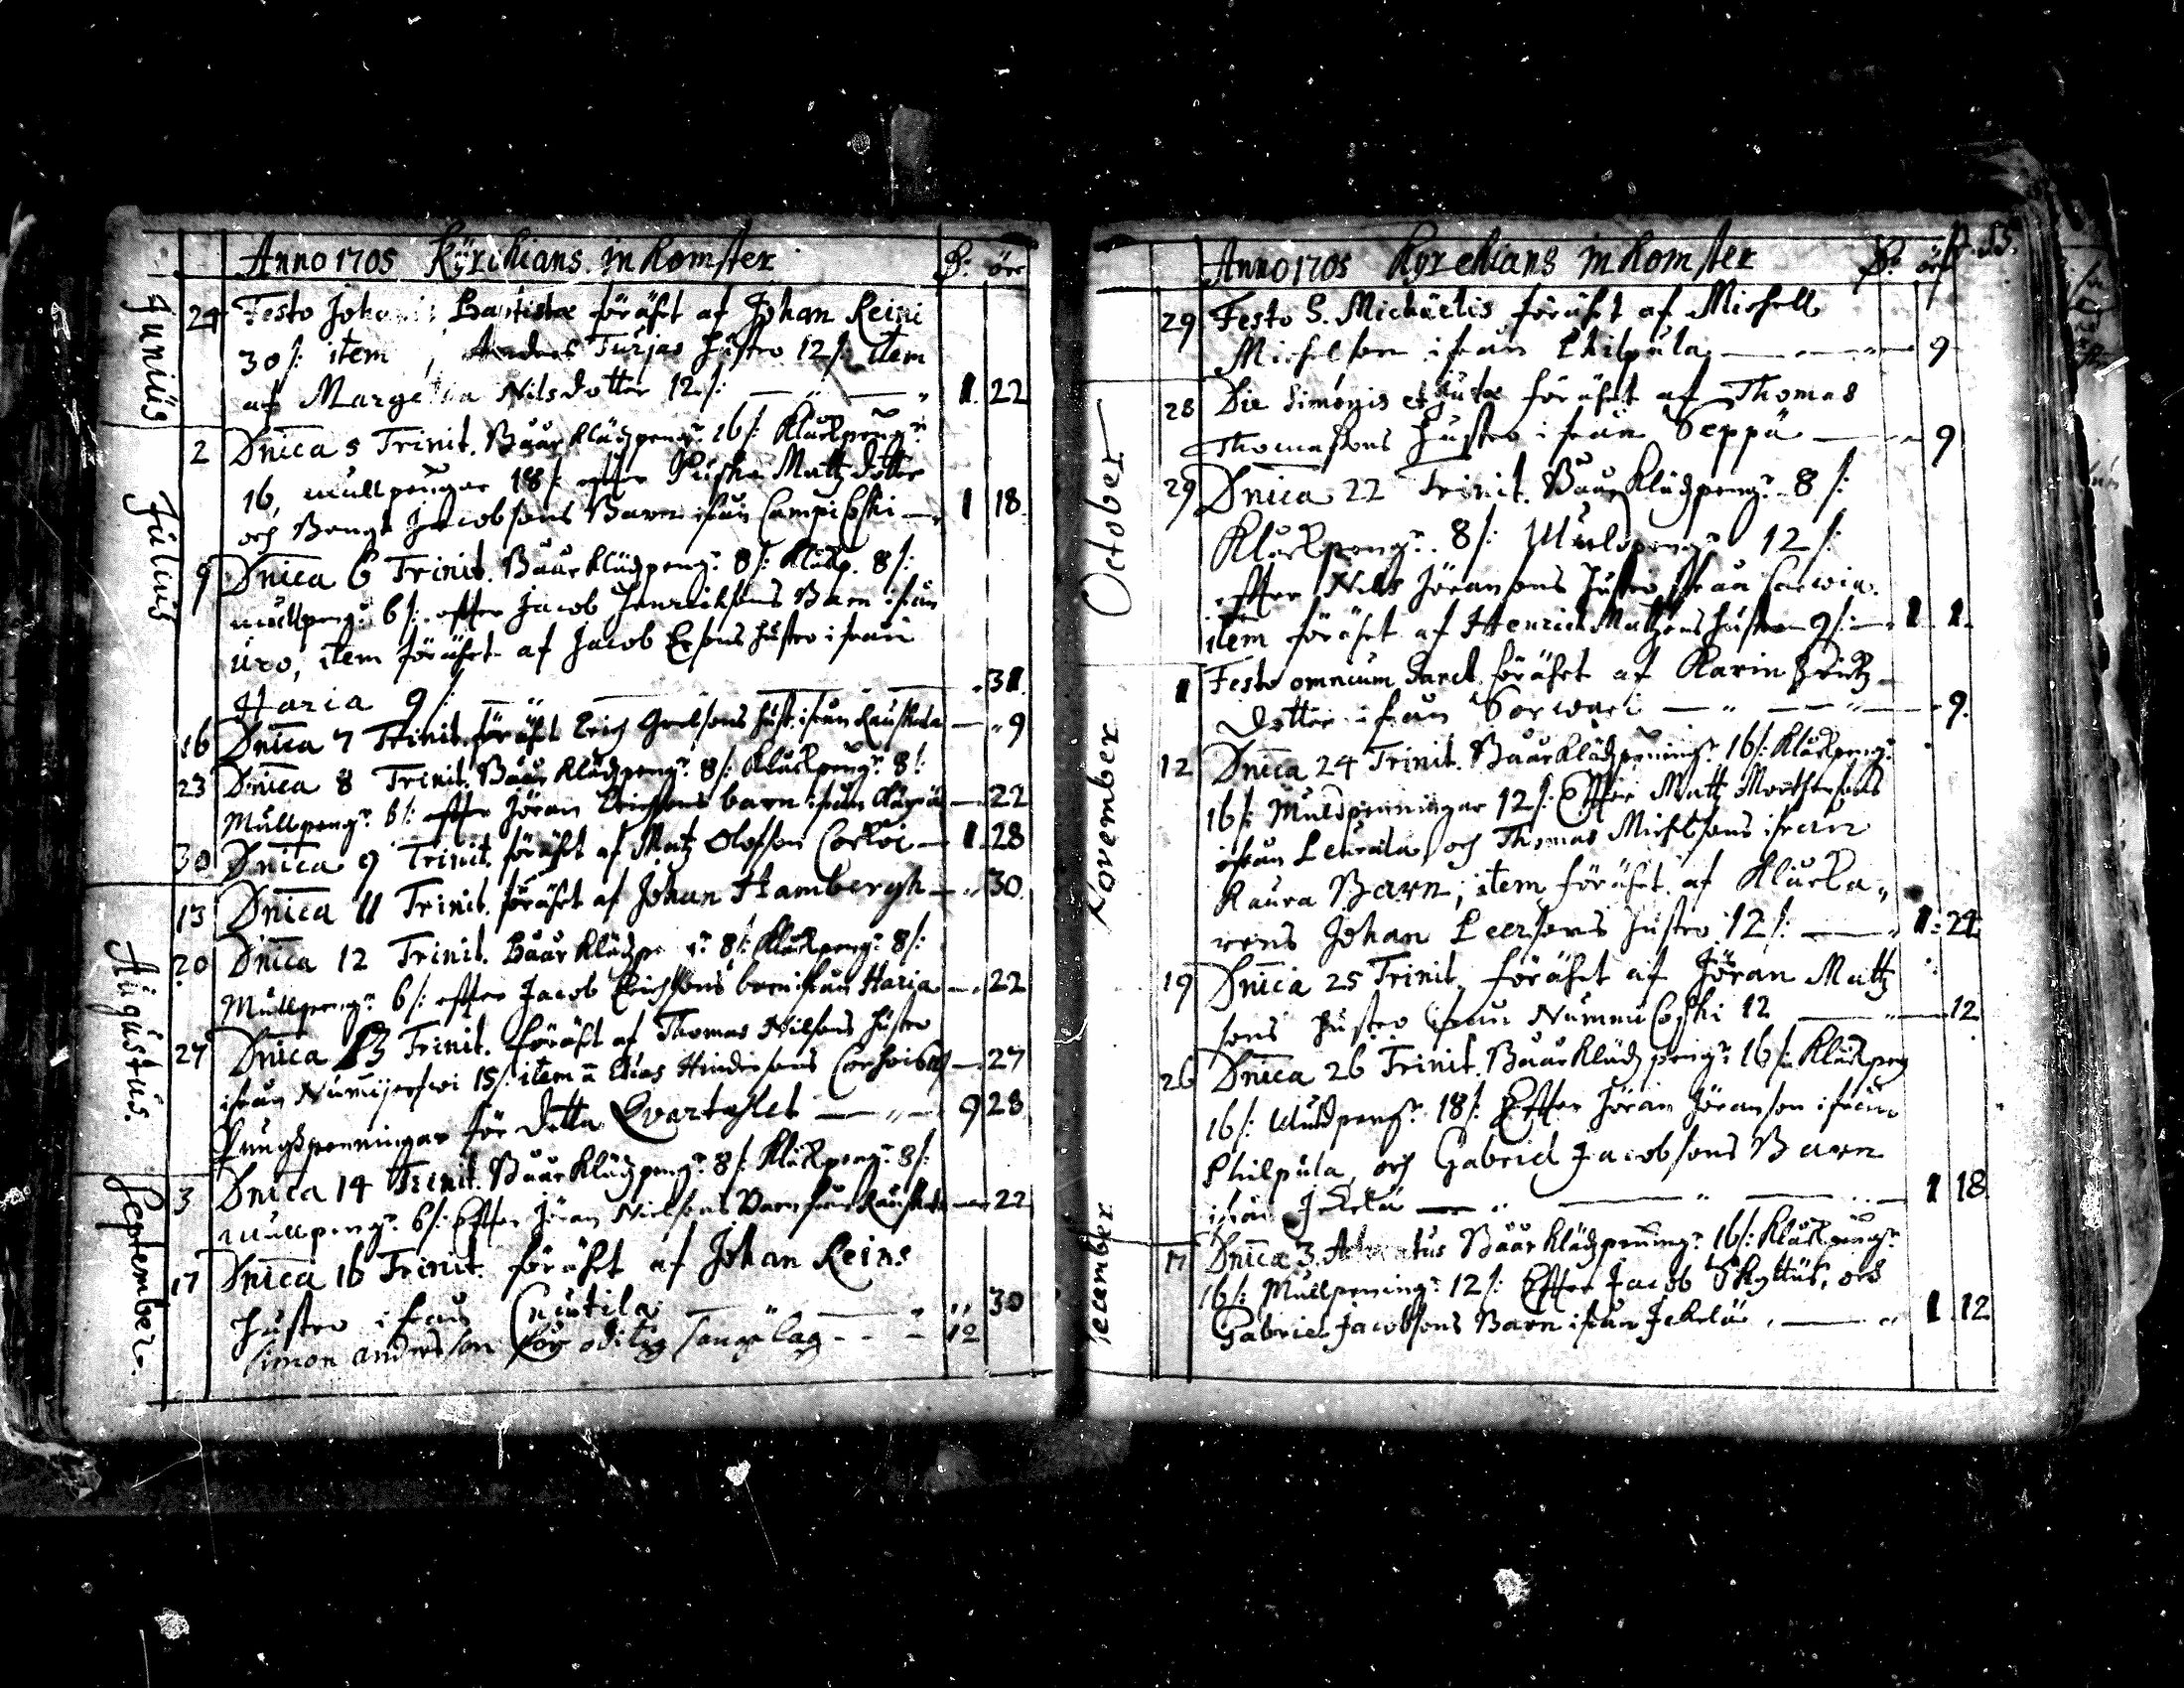 Anno 1705 Kyrckians inkomster D: öre
Junius
24 Festo Johannis Baptistæ förährt af Johan Reini
30 /: item, Anders Turjas hustro 12 /: item
af Margetha Nilsdotter 12 /: 1 22
Julius
2 Dnica 5 Trinit. Båår klädzpeng:r 16 /: Klåckpeng:r
16, mullpengar 18 /: effter Mattzdotter
och Bengt Jacobsons Barn ifrån Campikoski 1 18
9 Dnica 6 Trinit. Båårklädzpeng:r 8 /: Klåckp. 8 /:
mullpeng:r 6 /: effter Jacob Henrichsons Barn ifrån
Uro, item förährt af Jacob Ersons hustro ifrån
Haria 9 /: 31
16 Dnica 7 Trinit. förährt Erich hust: ifrån Rauskala 9
23 Dnica 8 Trinit. Båår klädzpeng:r 8 /: Klåckpeng:r 8 /:
Mullpeng:r 6 /: effter Jöran Erichsons barn ifrån 22
30 Dnica 9 Trinit. förährt af Matz Olofson Corkoi 1 28
Augustus.
13 Dnica 11 Trinit. förährt af Johan Hambergh 30
20 Dnica 12 Trinit. Båår klädzpeng:r 8 /: Klåckpeng:r 8 /:
Mullpeng:r 6 /: effter Jacob Erichsons barn ifrån Haria 22
27 Dnica 13 Trinit. förährt af Thomas Nilsons hustro
ifrån Numijerfwi 15 /: item Elias Hindersons 27
Pungspenningar för detta Qvartahlet 9 28
September.
3 Dnica 14 Trinit. Båår klädzpeng:r 8 /: Klåckpeng:r 8 /:
mullpeng:r 6 /: Effter Jöran Nielsons Barn ifrån Rauskala 22
17 Dnica 16 Trinit. förährt af Johan Reins
hustro ifrån Cnutila 30
Simon andersson för lag 12
Anno 1705 Kyrckians inkomster D: öre p. 55.
29 Festo S. Michaëlis förährt af Michell
Michelson ifrån Philpula 9
October
28 Die Simonis et Judæ förährt af Thomas
Thomasons hustro ifrån Seppä 9
29 Dnica 22 Trinit. Båår Klädzpeng:r 8 /:
Klåckpeng:r 8 /: Mullpeng:r 12 /:
effter Nils Jöransons hustro ifrån
item förährt af Henrich Matzons hustro 9 /: 1 1
November
1 Festo omnium Sanct. förährt af Karin
dotter ifrån Sorwari 9.
12 Dnica 24 Trinit. Båårklädzpening:r 16 /: Klåckpeng:r
16 /: Muldpenningar 12 /: Effter Matz
ifrån Leurala och Thomas Michelsons ifrån
Kaura Barn; item förährt af Klucka„
rens Johan Leersons hustro 12 /: 1: 24
19 Dnica 25 Trinit. förährt af Jöran Matz
sons hustro ifrån Nummikoski 12 12
26 Dnica 26 Trinit. Båår klädzpeng:r 16 /: Klåckpeng
16 /: Muldpeng:r 18 /: Effter Jöran Jöranson ifrån
Philpula, och Gabriel Jacobsons Barn
ifrån Jekelä 1 18
December
17 Dnica 3. Adventus Båår klädzpening:r 16 /: Klåckpeng:r
16 /: Mullpening:r 12 /: Effter Jacob Skyttus, och
Gabriel Jacobsons Barn ifrån Jekelä 1 12